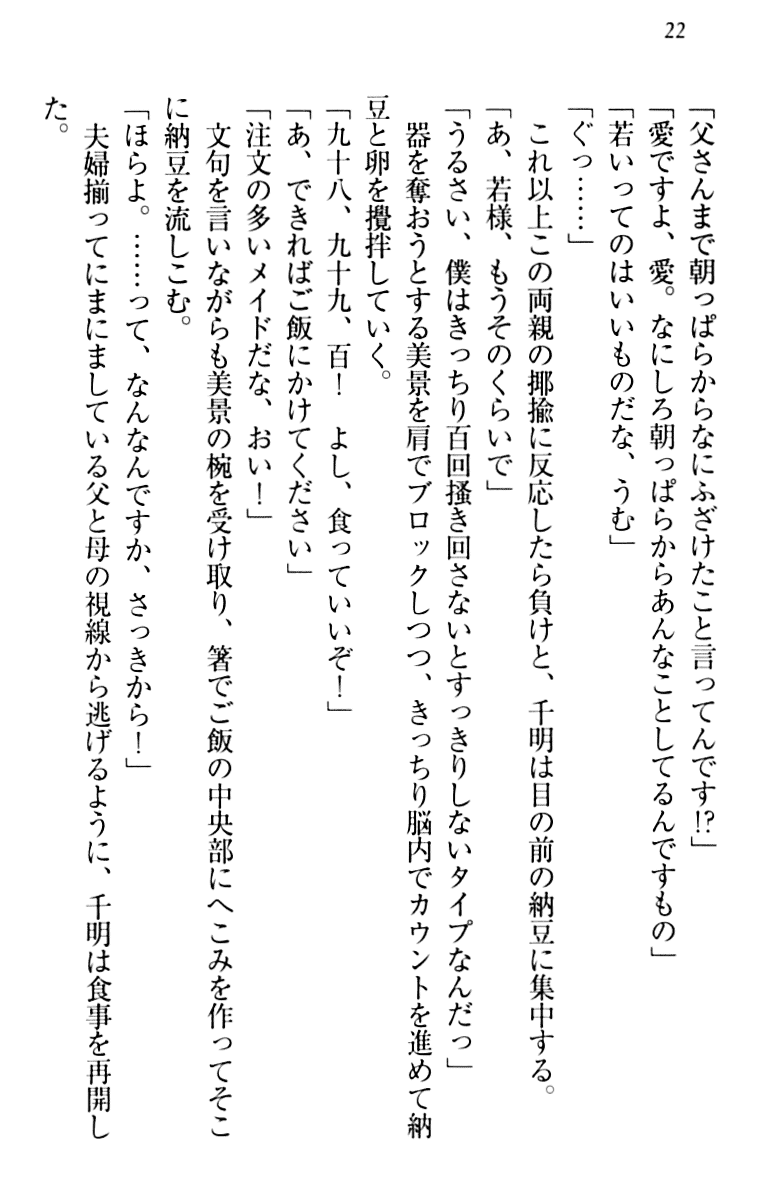 22
「父さんまで朝っぱらからなにふざけたこと言ってんです!?」
「愛ですよ、愛。なにしろ朝っぱらからあんなことしてるんですもの」
「若いってのはいいものだな、うむ」
「ぐっ……」
　これ以上この両親の揶揄に反応したら負けと、千明は目の前の納豆に集中する。
「あ、若様、もうそのくらいで」
「うるさい、僕はきっちり百回掻き回さないとすっきりしないタイプなんだっ」
　器を奪おうとする美景を肩でブロックしつつ、きっちり脳内でカウントを進めて納
豆と卵を攪拌していく。
「九十八、九十九、百！　よし、食っていいぞ！」
「あ、できればご飯にかけてください」
「注文の多いメイドだな、おい！」
　文句を言いながらも美景の椀を受け取り、箸でご飯の中央部にへこみを作ってそこ
に納豆を流しこむ。
「ほらよ。……って、なんなんですか、さっきから！」
　夫婦揃ってにまにましている父と母の視線から逃げるように、千明は食事を再開し
た。